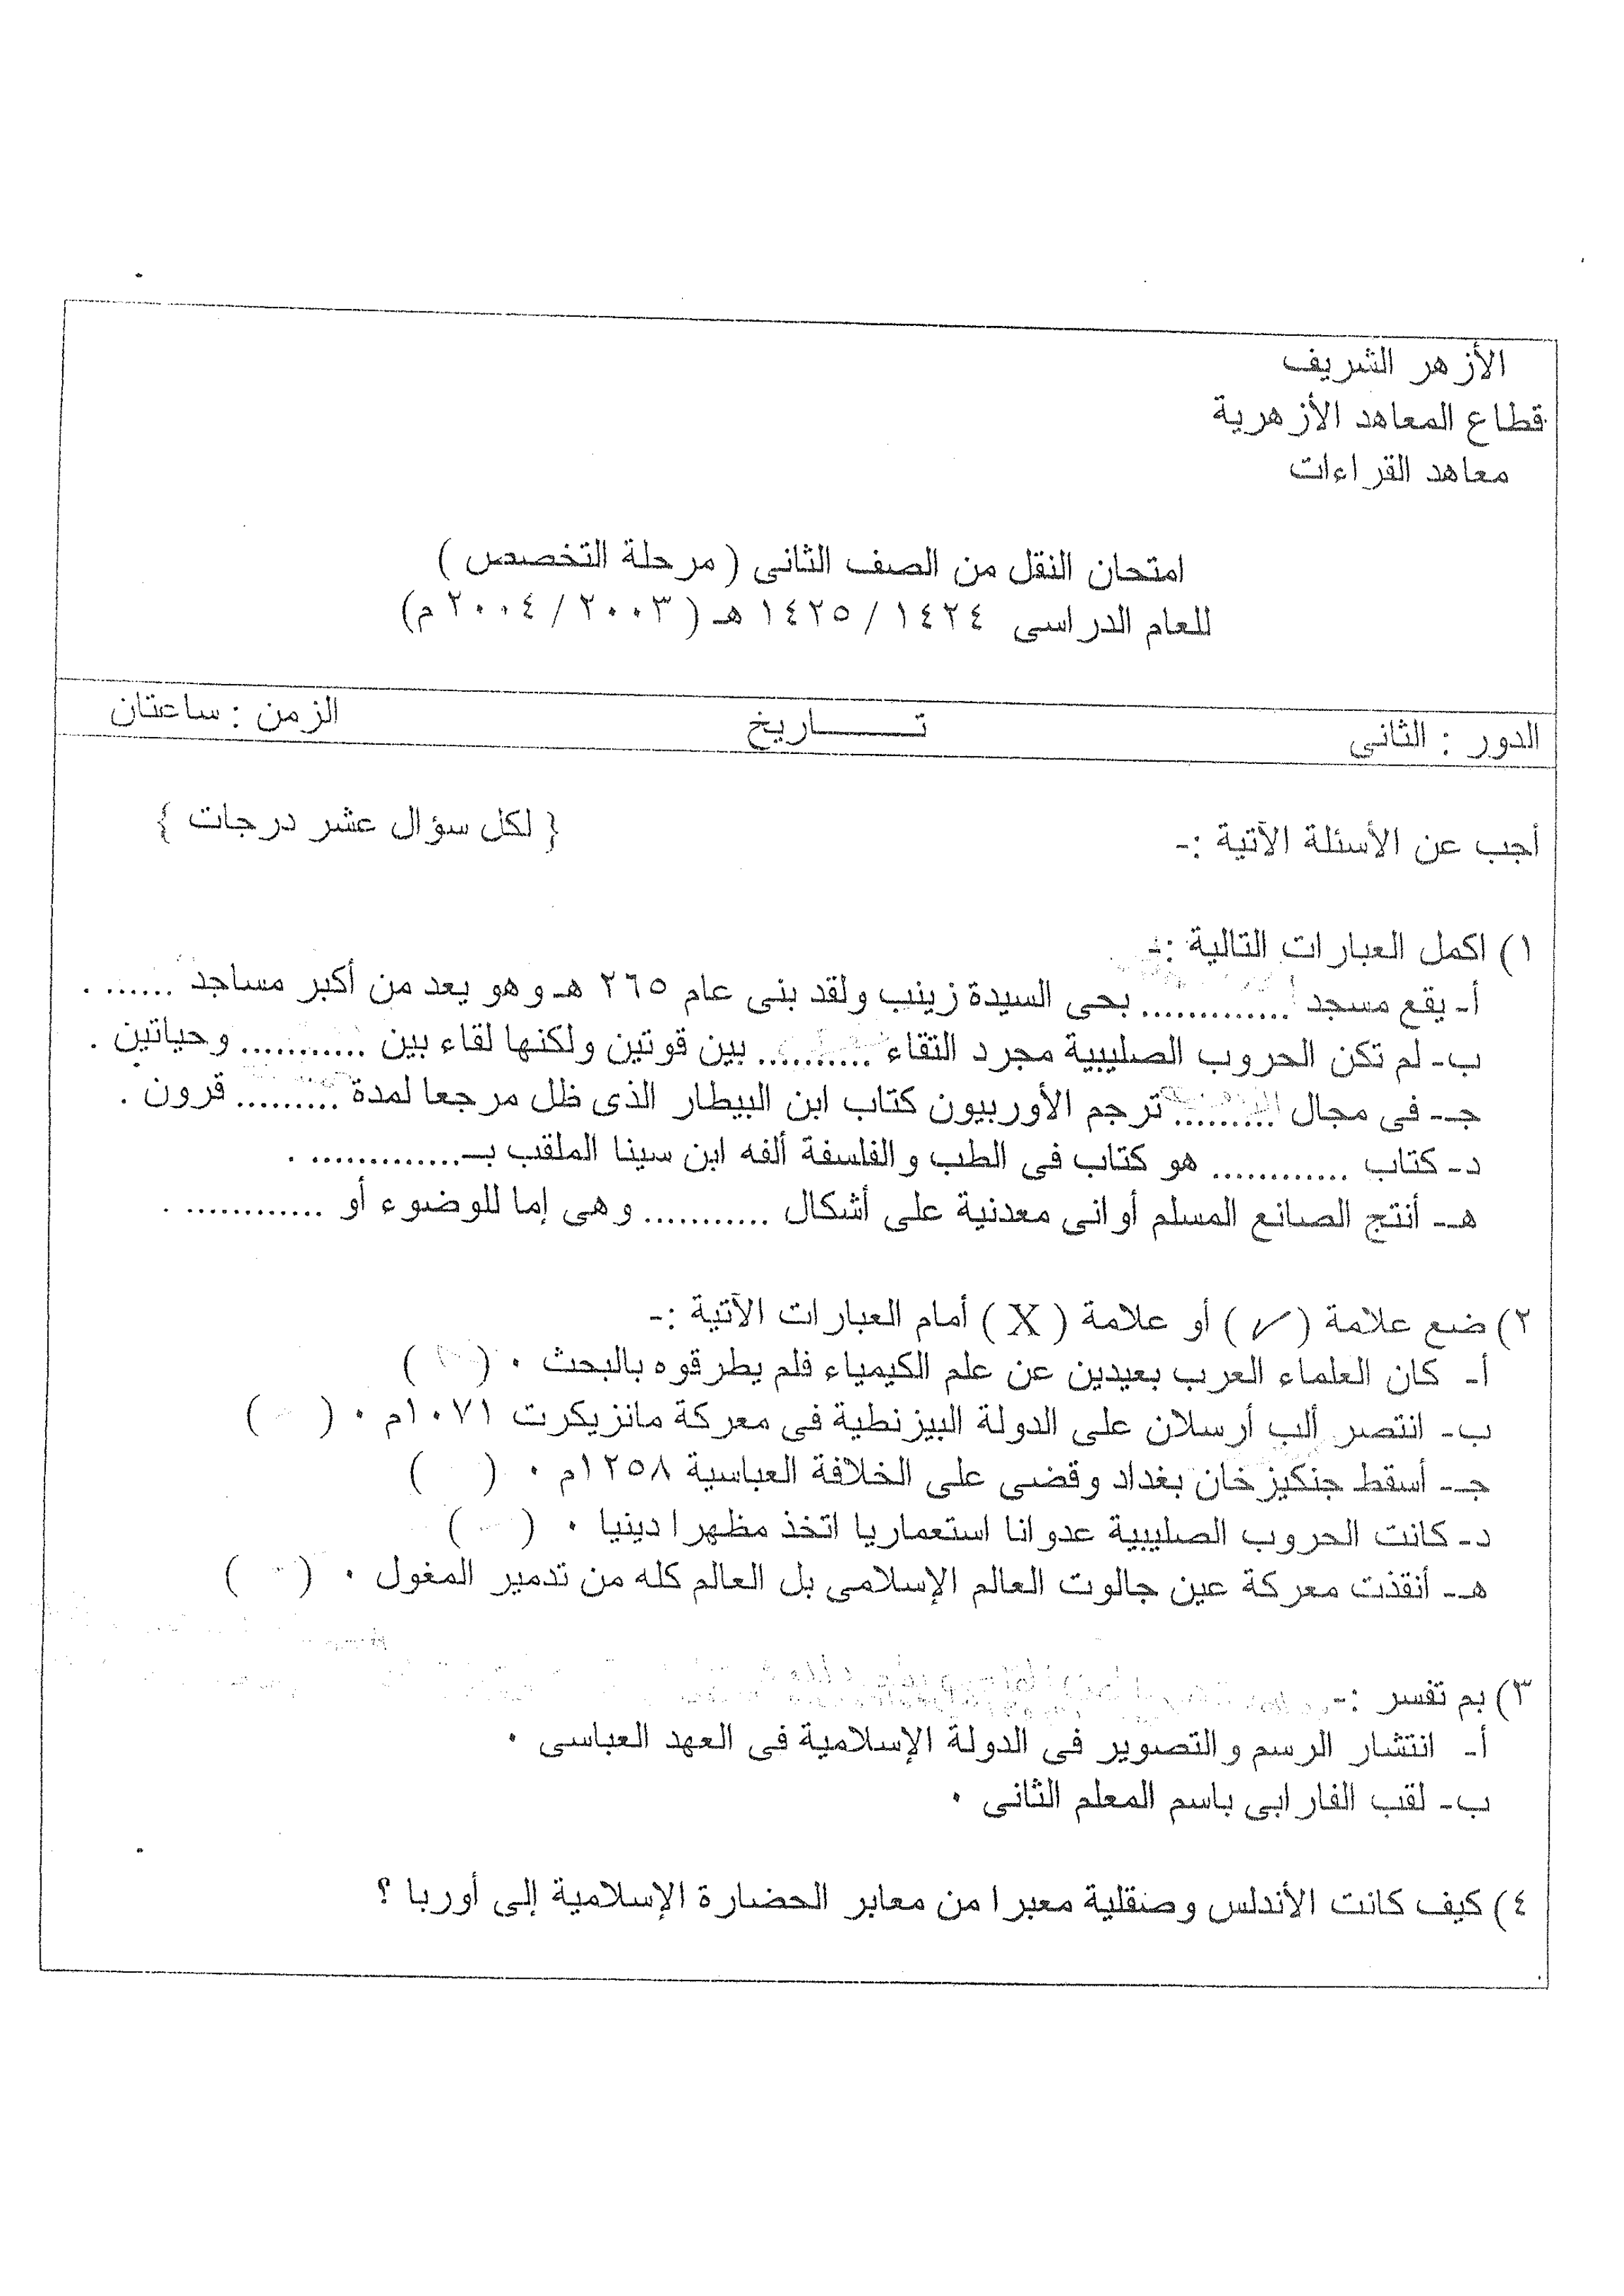 الأزهر الشريف
قطاع المعاهد الأزهرية
معاهد القراءات
امتحان النقل من الصف الثانى ( مرحلة التخصص )
للعام الدراسى ١٤٢٤ / ١٤٢٥ هـ ( ٢٠٠٣ / ٢٠٠٤ م)
الدور : الثانى تـــــــاريخ الزمن : ساعتان
أجب عن الأسئلة الآتية :- { لكل سؤال عشر درجات }
١) اكمل العبارات التالية :-
أ- يقع مسجد .............. بحى السيدة زينب ولقد بنى عام ٢٦٥ هـ وهو يعد من أكبر مساجد ....... .
ب- لم تكن الحروب الصليبية مجرد التقاء ........... بين قوتين ولكنها لقاء بين ............ وحياتين .
جـ- فى مجال .......... ترجم الأوربيون كتاب ابن البيطار الذى ظل مرجعا لمدة .......... قرون .
د- كتاب ............. هو كتاب فى الطب والفلسفة ألفه ابن سينا الملقب بـ.............. .
هـ- أنتج الصانع المسلم أوانى معدنية على أشكال ............ وهى إما للوضوء أو ............. .
٢) ضع علامة (✓) أو علامة ( X ) أمام العبارات الآتية :-
أ- كان العلماء العرب بعيدين عن علم الكيمياء فلم يطرقوه بالبحث . ( )
ب- انتصر ألب أرسلان على الدولة البيزنطية فى معركة مانزيكرت ١٠٧١م . ( )
جـ- أسقط جنكيز خان بغداد وقضى على الخلافة العباسية ١٢٥٨م . ( )
د- كانت الحروب الصليبية عدوانا استعماريا اتخذ مظهرا دينيا . ( )
هـ- أنقذت معركة عين جالوت العالم الإسلامى بل العالم كله من تدمير المغول . ( )
٣) بم تفسر :-
أ- انتشار الرسم والتصوير فى الدولة الإسلامية فى العهد العباسى .
ب- لقب الفارابى باسم المعلم الثانى .
٤) كيف كانت الأندلس وصنقلية معبرا من معابر الحضارة الإسلامية إلى أوربا ؟